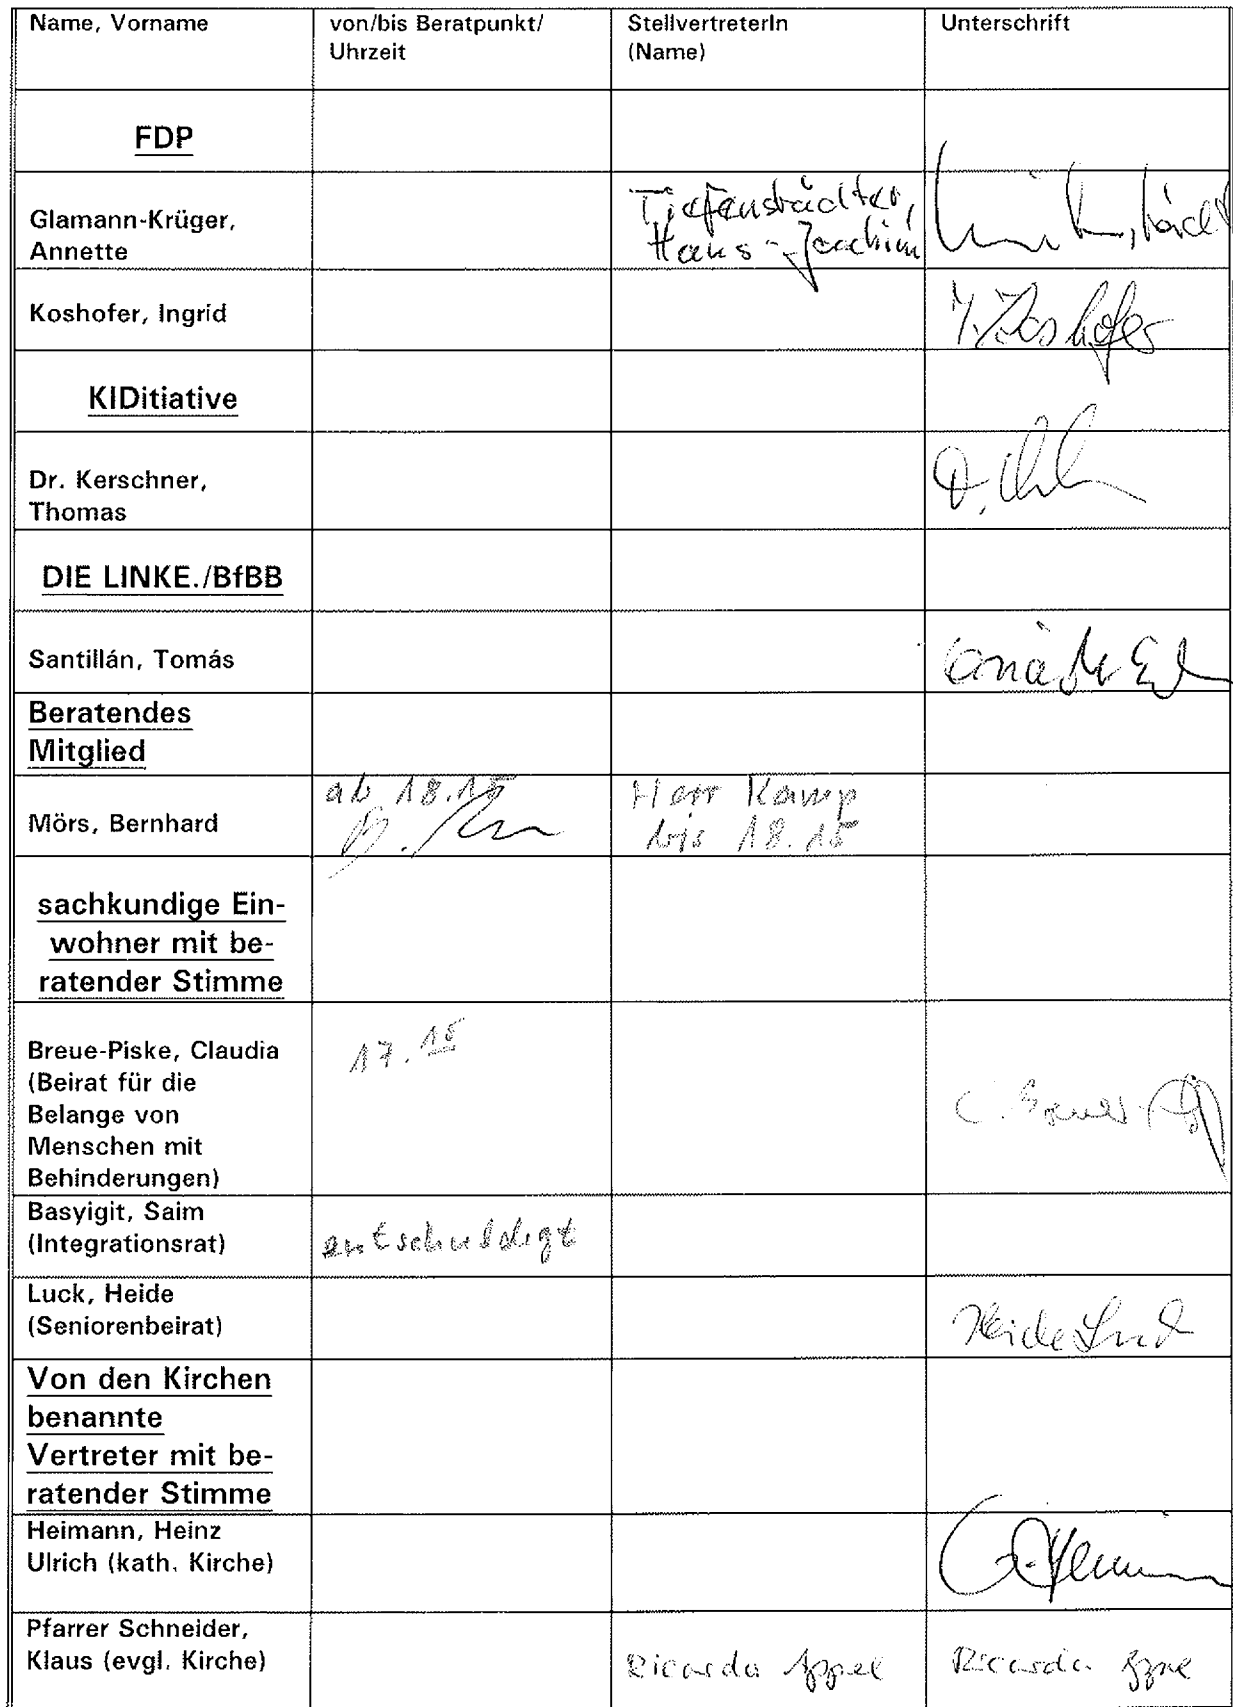 Name, Vorname
von/bis Beratpunkt/
Uhrzeit
StellvertreterIn
(Name)
Unterschrift
FDP
Glamann-Krüger,
Annette
Tiefenstädter,
Hans-Joachim
Koshofer, Ingrid
I. Koshofer
KIDitiative
Dr. Kerschner,
Thomas
DIE LINKE./BfBB
Santillán, Tomás
Beratendes
Mitglied
Mörs, Bernhard
ab 18.15
Herr Kamp
bis 18.15
sachkundige Ein-
wohner mit be-
ratender Stimme
Breue-Piske, Claudia
(Beirat für die
Belange von
Menschen mit
Behinderungen)
17.15
Basyigit, Saim
(Integrationsrat)
entschuldigt
Luck, Heide
(Seniorenbeirat)
Heide Luck
Von den Kirchen
benannte
Vertreter mit be-
ratender Stimme
Heimann, Heinz
Ulrich (kath. Kirche)
Pfarrer Schneider,
Klaus (evgl. Kirche)
Ricarda Appel
Ricarda